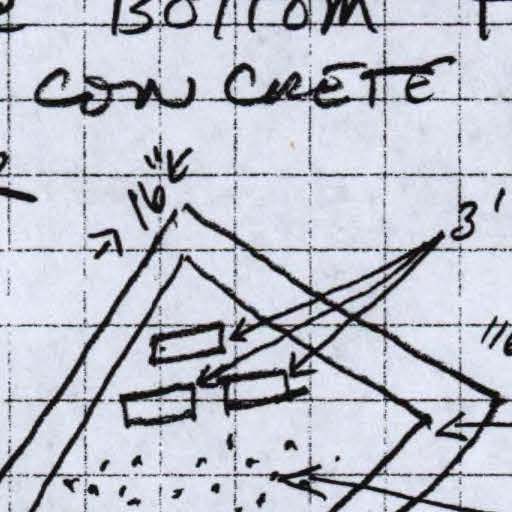 BOTTOM
CONCRETE
16"
3'